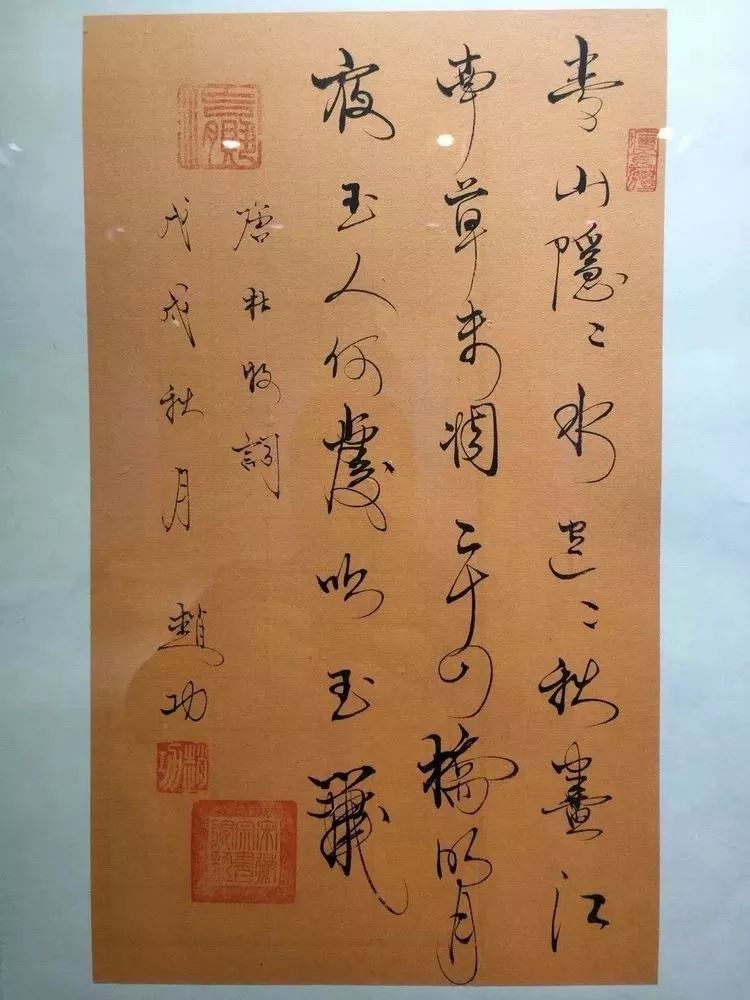 青山隱〻水迢〻秋盡江
南草未凋二十四橋明月
夜玉人何處吹玉簫
唐杜牧詞
戊戌秋月 趙功
趙功